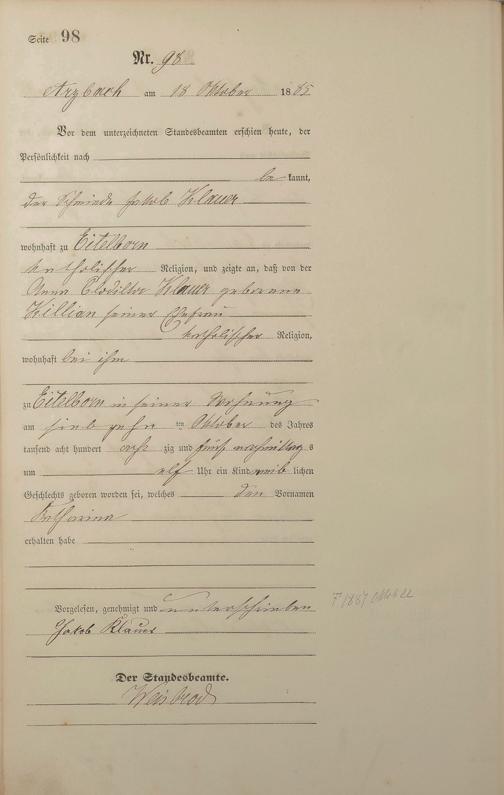 Seite 98
Nr. 98
Arzbach am 18 Oktober 1885
Vor dem unterzeichneten Standesbeamten erschien heute, der
Persönlichkeit nach
be kannt,
der Schmiede Jakob Klauer
wohnhaft zu Eitelborn
katholischer Religion, und zeigte an, daß von der
Anna Klauer geborene
Killian seiner Ehefrau
katholischer Religion,
wohnhaft bei ihm
zu Eitelborn in seiner Wohnung
am siebzehn ten Oktober des Jahres
tausend acht hundert acht zig und fünf vormittag s
um elf Uhr ein Kind weib lichen
Geschlechts geboren worden sei, welches den Vornamen
Katharina
erhalten habe
Vorgelesen, genehmigt und unterschrieben
Jakob Klauer
Der Standesbeamte.
Weisbrod